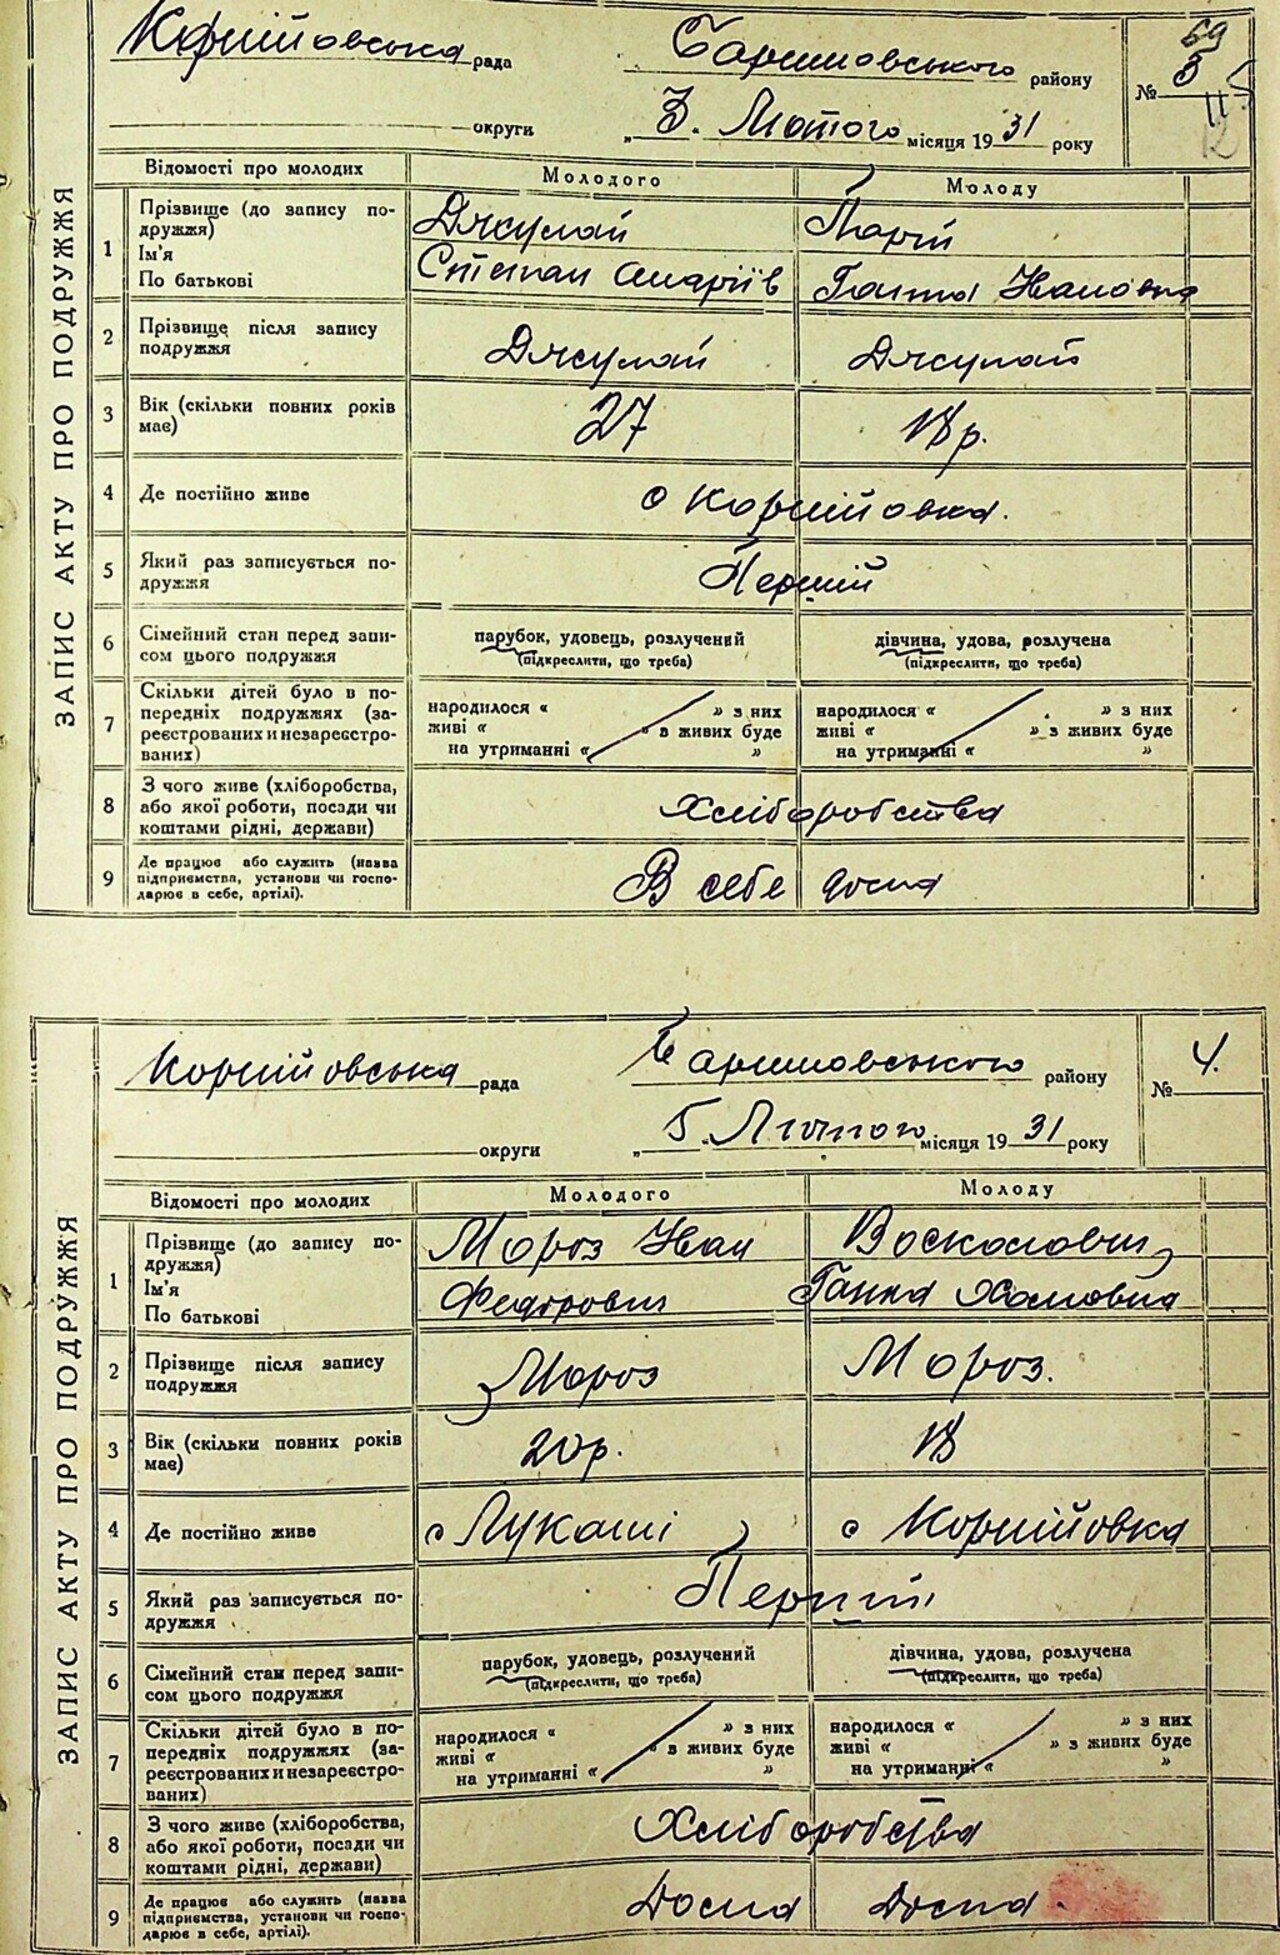 69
Корнійовська рада Баришовського району № 3
округи „ 3. Лютого місяця 1931 року
ЗАПИС АКТУ ПРО ПОДРУЖЖЯ
Відомості про молодих Молодого Молоду
1 Прізвище (до запису по-
дружжя) Джулай Порій
Ім'я
По батькові Степан Ома́ріїв Ганна Івановна
2 Прізвище після запису
подружжя Джулай Джулай
3 Вік (скільки повних років
має) 27 18 р.
4 Де постійно живе с Корнійовка.
5 Який раз записується по-
дружжя Перший
6 Сімейний стан перед запи-
сом цього подружжя парубок, удовець, розлучений дівчина, удова, розлучена
(підкреслити, що треба) (підкреслити, що треба)
7 Скільки дітей було в по-
передніх подружжях (за-
реєстрованих и незареєстро-
ваних)
народилося « » з них народилося « » з них
живі « » в живих буде живі « » з живих буде
на утриманні « » на утриманні « »
8 З чого живе (хліборобства,
або якої роботи, посади чи
коштами рідні, держави) Хліборобства
9 Де працює або служить (назва
підприємства, установи чи госпо-
дарює в себе, артілі). В себе дома
Корнійовська рада Баришовського району № 4.
округи „ 5. Лютого місяця 1931 року
ЗАПИС АКТУ ПРО ПОДРУЖЖЯ
Відомості про молодих Молодого Молоду
1 Прізвище (до запису по-
дружжя) Мороз Іван
Ім'я
По батькові Федорович Ганна
2 Прізвище після запису
подружжя Мороз Мороз.
3 Вік (скільки повних років
має) 20 р. 18
4 Де постійно живе с Лукаші с Корнійовка
5 Який раз записується по-
дружжя Перший
6 Сімейний стан перед запи-
сом цього подружжя парубок, удовець, розлучений дівчина, удова, розлучена
(підкреслити, що треба) (підкреслити, що треба)
7 Скільки дітей було в по-
передніх подружжях (за-
реєстрованих и незареєстро-
ваних)
народилося « » з них народилося « » з них
живі « » з живих буде живі « » з живих буде
на утриманні « » на утриманні « »
8 З чого живе (хліборобства,
або якої роботи, посади чи
коштами рідні, держави) Хліборобства
9 Де працює або служить (назва
підприємства, установи чи госпо-
дарює в себе, артілі). Дома Дома.